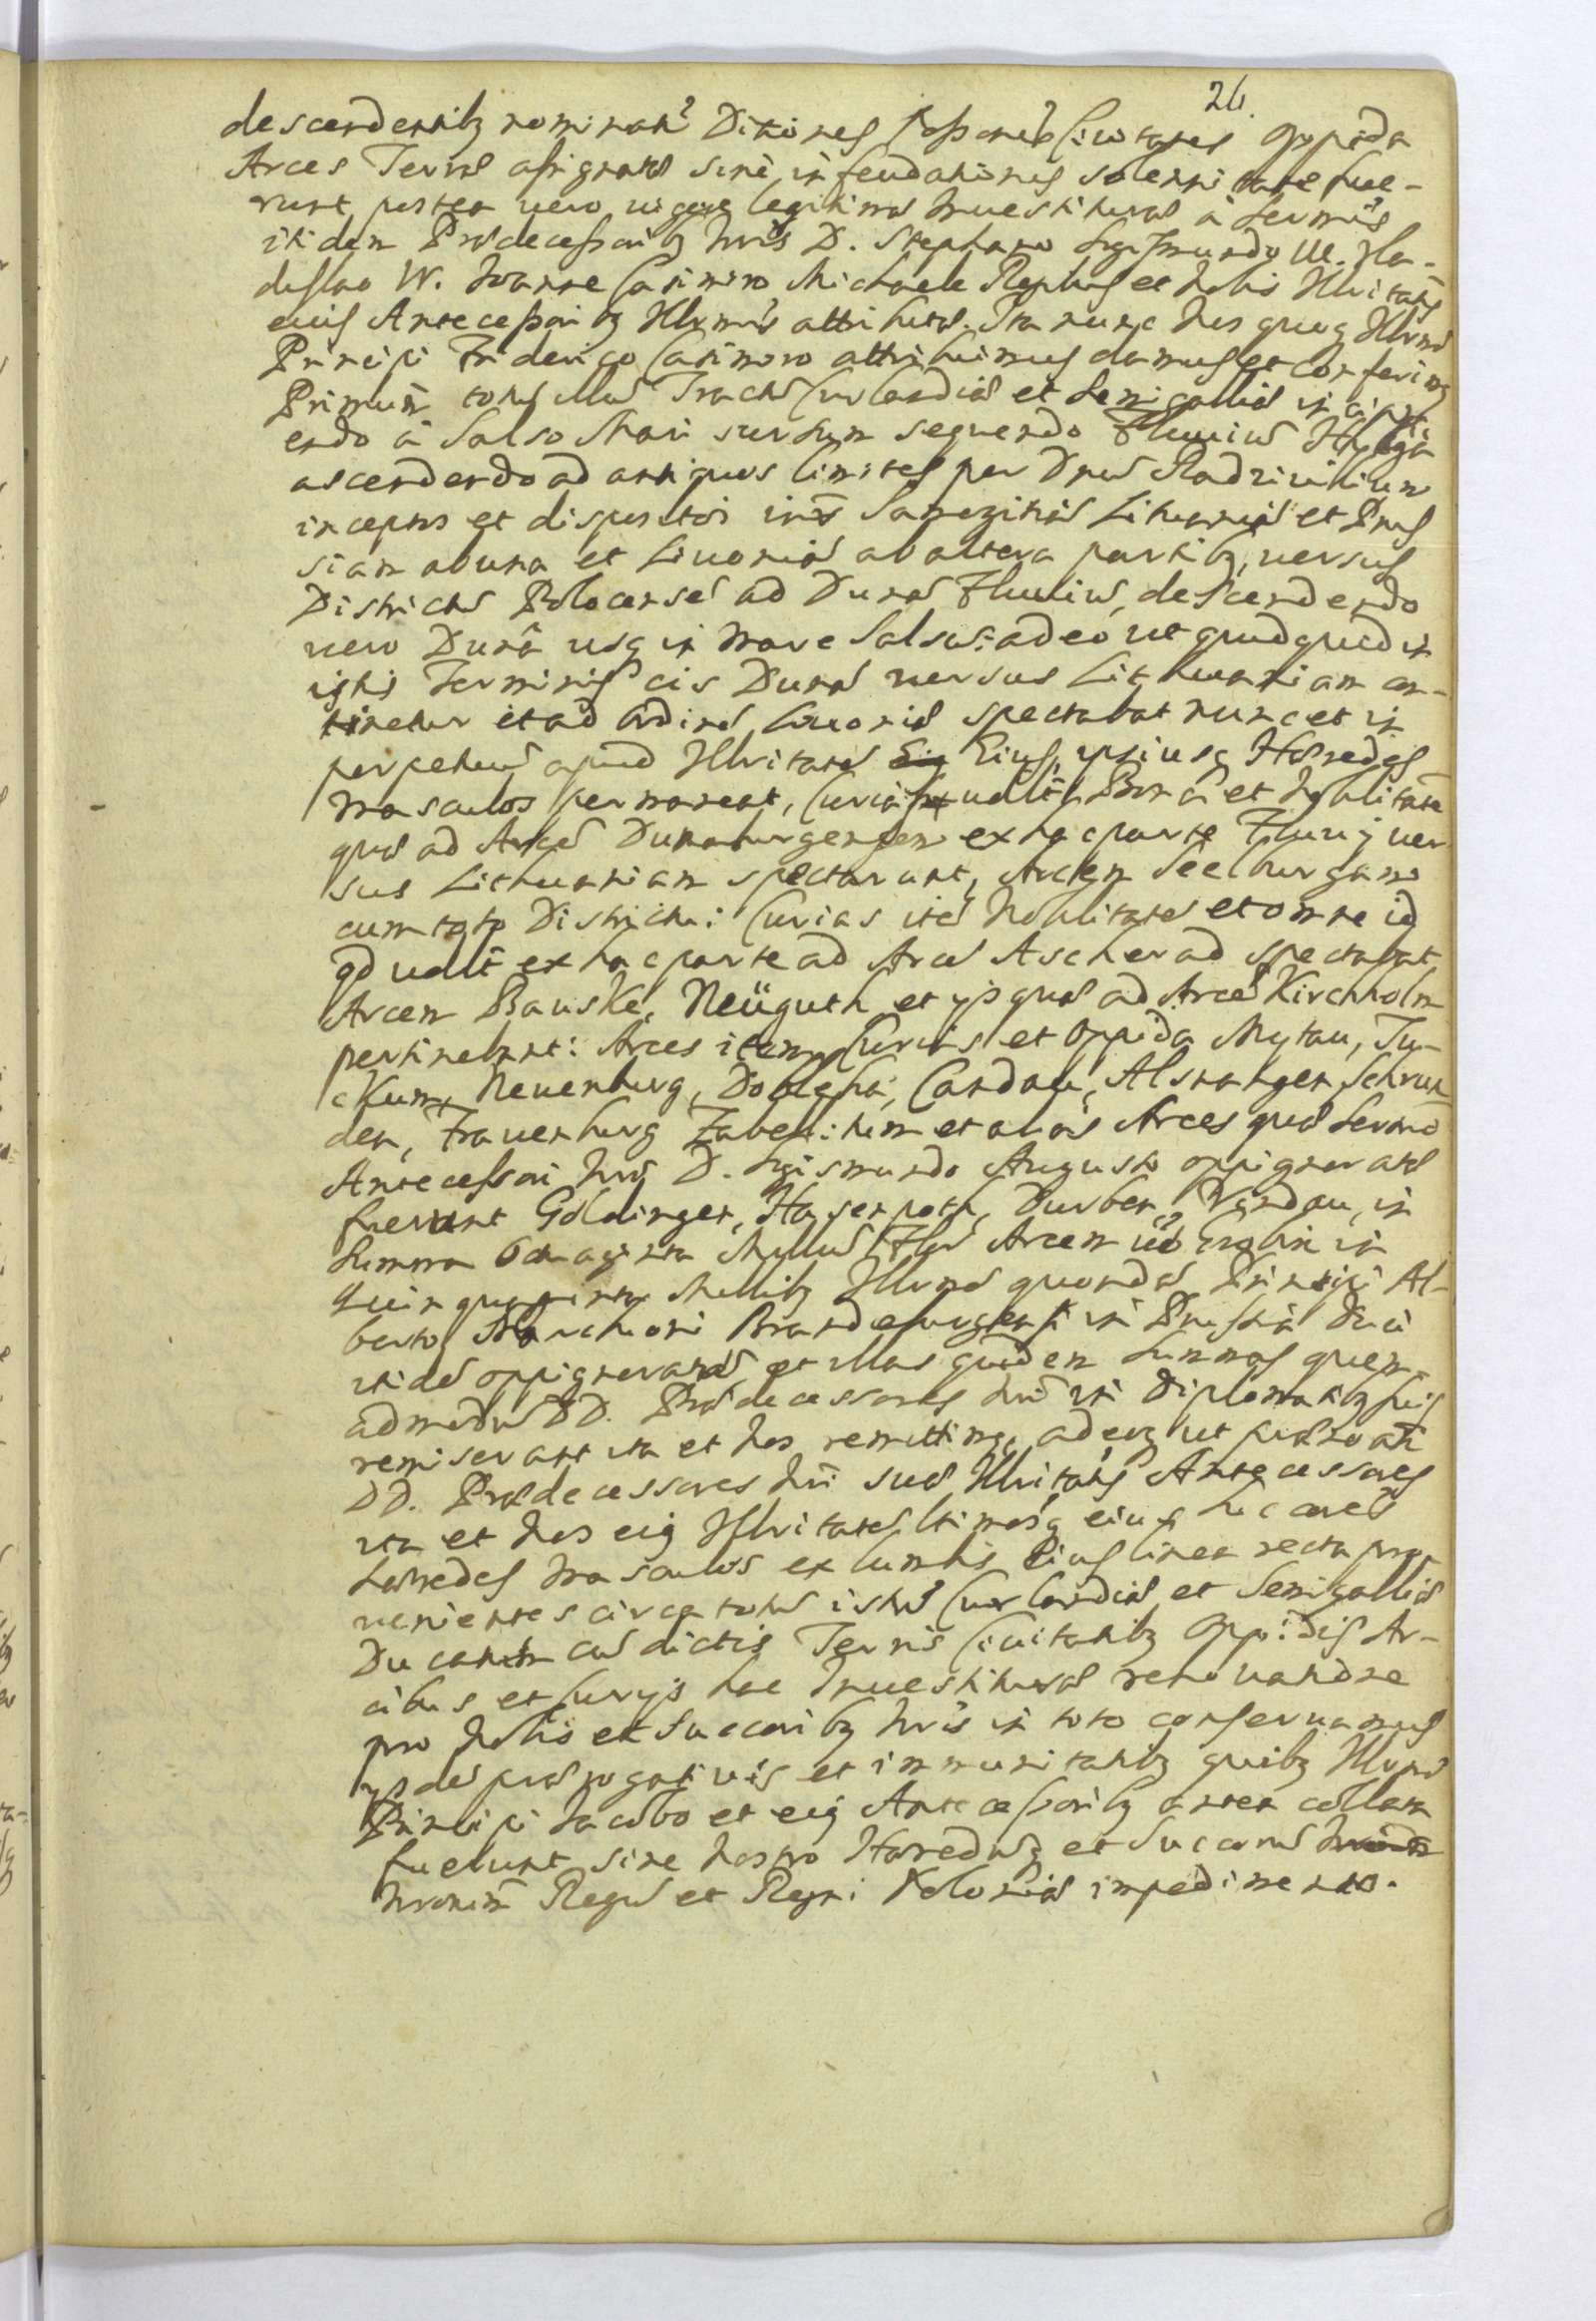 26.
descendentibꝫ nominat Ditiones Possones Civitates Oppida
Arces Terrae assignatae sine infeudationis solennitate fue-
runt, postea vero vigore legitimae Investiturae à Sermis
itidem Praedecessoribꝫ nris D. Stephano Sigismundo III. Vla-
dislao IV. Joanne Casimiro Michaele Regibus et Nobis Illritatis
eius Antecessoribꝫ Illrmis attributae. Ita nunc Nos quoqꝫ Illrmo
Principi Friderico Casimiro attribuimus damus et conferimꝫ
Primum totum illum Tractum Curlandiae et Semigalliae incipi-
endo à Salso Mari sursum sequendo Fluvium
ascendendo ad antiquos limites per Dnum Radzivilium
inceptos et dispositos inter Samogitiam Lituaniam et Prus
siam ab una et Livoniam ab altera partibꝫ, versus
Districtum Polocensem ad Dunam Fluvium, descendendo
vero Duna usqꝫ in mare Salsum: adeo ut quidquid in
istis Terminis cis Dunam versus Lithuaniam con-
tinetur et ad Ordinem Livoniae spectabat nunc et in
perpetuum apud Illritatem Eius, ipsiusqꝫ Haeredes
Masculos permaneat, Bona et Nobilitatem
quae ad Arcem Dunaburgensem ex hac parte Fluvij ver
sus Lithuaniam spectarunt, Arcem Seelburgam
cum toto Districtu: Curias item Nobilitatem et omne id
qd ex hac parte ad Arcem Ascherad spectabat
Arcem Bauske, Neüguth, et ijs quae ad Arcem Kirchholm
pertinebant: Arces item Curias et Oppida Mytau, Tu-
ckum, Neuenburg, Doblehn, Candau, Alsvangen Schrun
den, Frauenburg Zabeln: tum et alias Arces quae Sermo
Antecessori nro D. Sigismundo Augusto oppigneratae
fuerunt Goldingen, Hasenpoth, Durben, Windau, in
Summa Octaginta Millium Arcem Grobin in
Quinquaginta Millibꝫ Illrmo quondam Principi Al-
berto Marchioni Brandeburgensi in Prussia Duci
itidem oppigneratam et illas quidem Summas quem-
admodum DD. Praedecessores nri in Diplomatibꝫ suis
remiserant ita et Nos remittimꝫ, adeoqꝫ ut
DD. Praedecessores nri suae Illritatis Antecessores
ita et Nos eiꝫ Illritatem
Haeredes Masculos ex lumbis Eius linea recta pro-
venientes circa totum istum Curlandiae et Semigalliae
Ducatum cum dictis Terris Civitatibꝫ Oppidis Ar-
cibus et Curijs hac Investiturae renovatione
pro Nobis et Succoribꝫ nris in toto conservamus
ijsdem praerogativis et immunitatibꝫ quibꝫ Illrmo
Principi Jacobo et eiꝫ Antecessoribꝫ antea collata
fuerunt, sine nostro Haeredum et Succorum
nrorum Regum et Regni Poloniae impedimento.